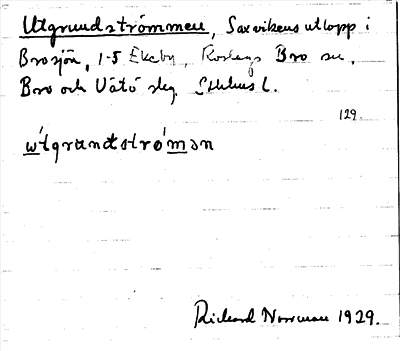 Utgrundströmmen, Saxvikens utlopp i
Brosjön, 1-5 Ekeby, Roslags Bro sn,
Bro och Vätö slg, Sthlms l.
129.
ẃtgrun̄tstrǿmən
Richard Norrman 1929.